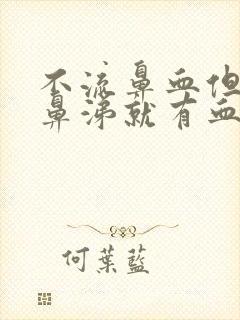 不流鼻血但
鼻涕就有血
何葉藍